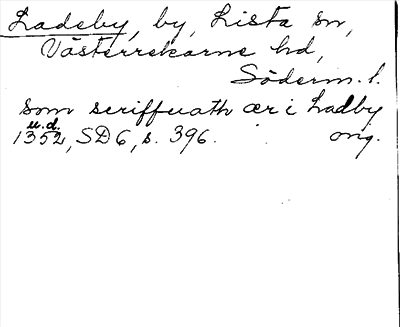 Ladeby, by, Lista sn,
Västerrekarne hd,
Söderm. l.
som scriffuath ær i Ladby
u.d.
1352, SD 6, s. 396. orig.